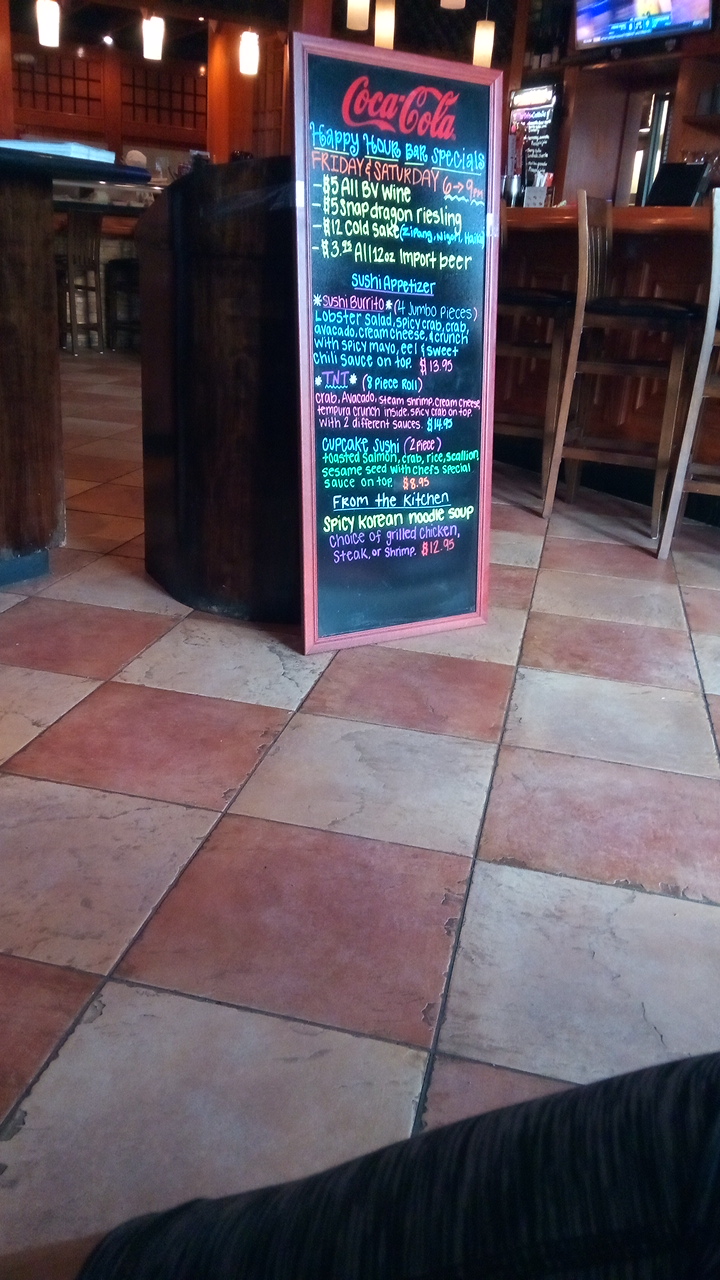 Coca-Cola
Happy Hour Bar Specials
FRIDAY & SATURDAY 6→9PM
-$5 All BV Wine
-$5 Snapdragon riesling
-$12 Cold sake (Zipang, Nigori, Haiku)
-$3.25 All 12oz Import beer
Sushi Appetizer
*Sushi Burrito* (4 Jumbo Pieces)
Lobster salad, spicy crab, crab,
avocado, cream cheese, & crunch
with spicy mayo, eel & sweet
chili sauce on top. $13.95
*TNT* (8 Piece Roll)
crab, Avocado, steam shrimp, cream cheese,
tempura crunch inside, spicy crab on top
with 2 different sauces. $14.95
Cupcake Sushi (2 Piece)
toasted Salmon, crab, rice, scallion,
sesame seed with chefs special
sauce on top. $8.95
From the Kitchen
Spicy Korean noodle soup
choice of grilled chicken,
steak, or shrimp. $12.95